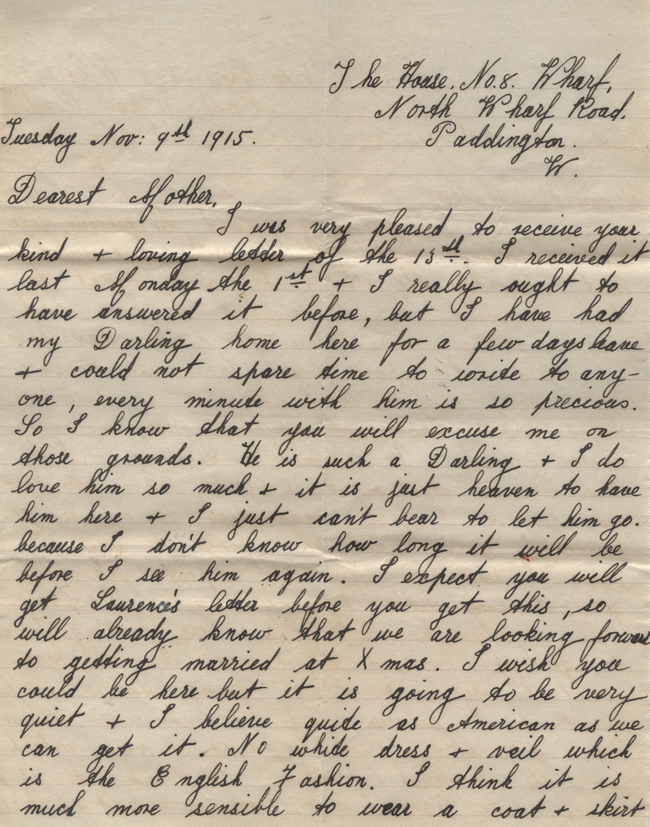 The House. No. 8. Wharf,
North Wharf Road.
Tuesday Nov: 9th 1915.
Paddington.
W.
Dearest Mother,
I was very pleased to receive your
kind + loving letter of the 13th. I received it
last Monday the 1st + I really ought to
have answered it before, but I have had
my Darling home here for a few days leave
+ could not spare time to write to any-
one, every minute with him is so precious.
So I know that you will excuse me on
those grounds. He is such a Darling + I do
love him so much + it is just heaven to have
him here + I just can't bear to let him go.
because I don't know how long it will be
before I see him again. I expect you will
get Laurence's letter before you get this, so
will already know that we are looking forward
to getting married at Xmas. I wish you
could be here but it is going to be very
quiet + I believe quite as American as we
can get it. No white dress + veil which
is the English Fashion. I think it is
much more sensible to wear a coat + skirt